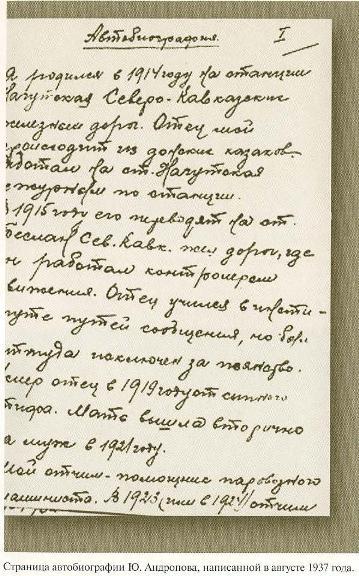 Автобиография. I
Я родился в 1914 году на станции
Нагутская Северо-Кавказские
железной дороги. Отец мой
происходит из донских казаков.
Работал на ст. Нагутская
дежурным по станции.
В 1915 году его переводят на ст.
Беслан Сев. Кавк. жел дороги, где
он работал контролером
движения. Отец учился в инсти-
туте путей сообщения, но был
оттуда исключен за пьянство.
Умер отец в 1919 году от сыпного
тифа. Мать вышла вторично
за муж в 1921 году.
Мой отчим - помощник паровозного
машиниста. В 1923 (или в 1924) отчим
Страница автобиографии Ю. Андропова, написанной в августе 1937 года.